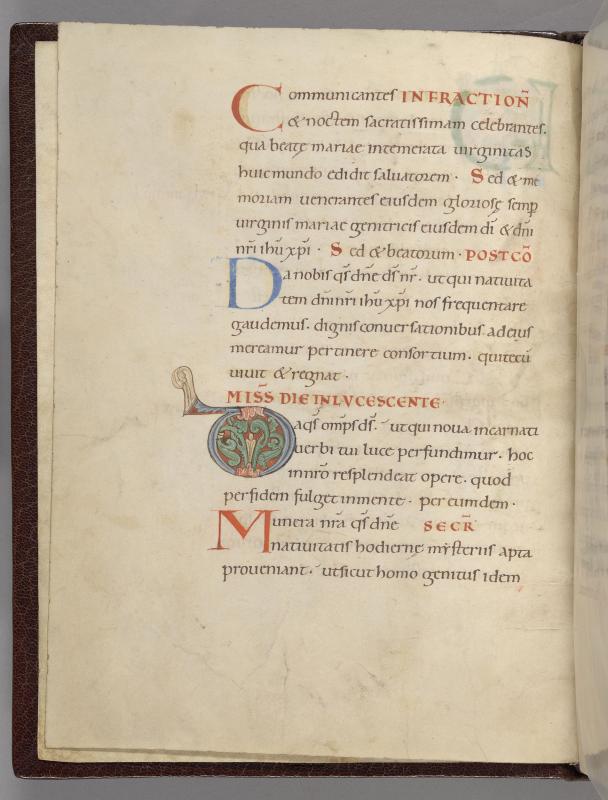 Communicantes INFRACTIOÑ
& noctem sacratissimam celebrantes.
qua beatę mariae intemerata uirginitas
huic mundo edidit saluatorem · Sed & me
moriam uenerantes eiusdem gloriosę semp̄
uirginis mariae genitricis eiusdem dī & dn̄i
nr̄i ihū xp̄i · Sed & beatorum · POSTCŌ
Da nobis qs̄ dn̄e ds̄ nr̄ · ut qui natiuita
tem dn̄i nr̄i ihū xp̄i nos frequentare
gaudemus · dignis conuersationibus ad eius
mereamur pertinere consortium · qui tecū
uiuit & regnat ·
MISS̄ DIE INLVCESCENTE ·
Da qs̄ omps̄ ds̄ · ut qui noua incarnati
uerbi tui luce perfundimur · hoc
in nr̄o resplendeat opere · quod
per fidem fulget in mente · per eumdem ·
Munera nr̄a qs̄ dn̄e SECR̄
natiuitatis hodiernę mysteriis apta
proueniant · ut sicut homo genitus idem